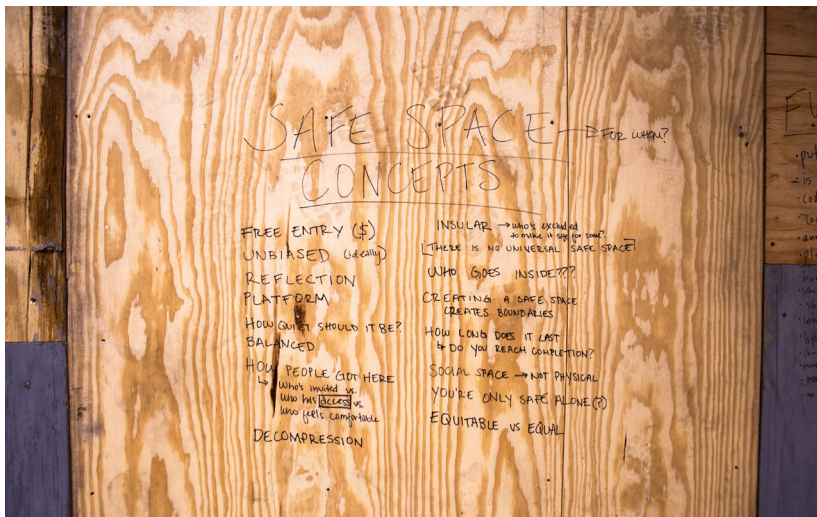 SAFE SPACE → FOR WHOM?
CONCEPTS
FREE ENTRY ($)
UNBIASED (ideally)
REFLECTION
PLATFORM
HOW QUIET SHOULD IT BE?
BALANCED
HOW PEOPLE GOT HERE
↳ Who's invited vs.
who has access vs
who feels comfortable
DECOMPRESSION
INSULAR → who's excluded
to make it safe for some?
[THERE IS NO UNIVERSAL SAFE SPACE]
WHO GOES INSIDE???
CREATING A SAFE SPACE
CREATES BOUNDARIES
HOW LONG DOES IT LAST
↳ DO YOU REACH COMPLETION?
SOCIAL SPACE → NOT PHYSICAL
YOU'RE ONLY SAFE ALONE(?)
EQUITABLE vs EQUAL